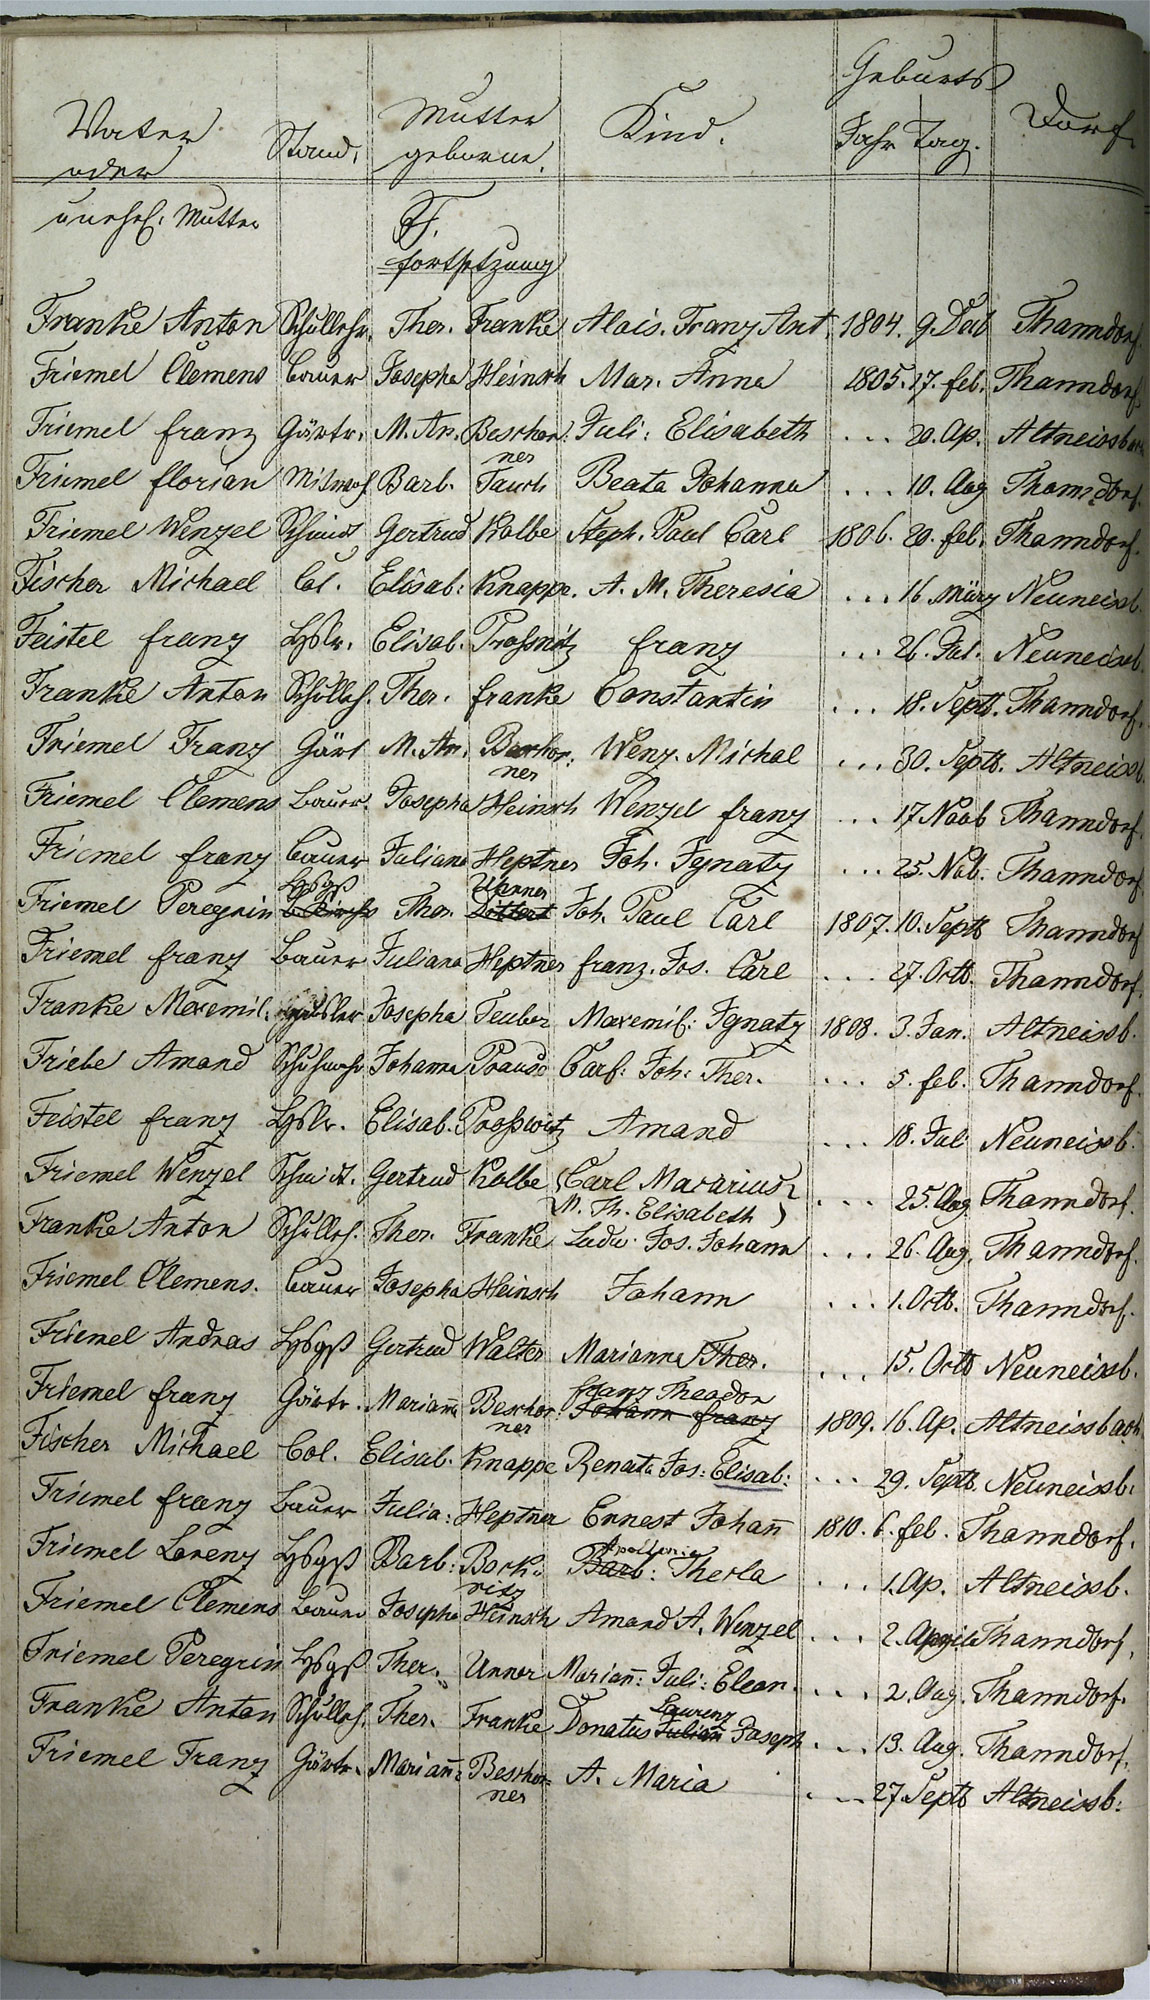 Geburts
Vater Stand. Mutter Kind. Jahr Tag. Dorf.
oder geborne.
unehel. Mutter F.
Fortsetzung
Franke Anton Schullehr. Ther. Franke Alois. Franz Ant. 1804. 9. Dec Thanndorf.
Friemel Clemens Bauer Josepha Heinsch Mar. Anna 1805. 17. feb. Thanndorf.
Friemel franz Gärtr. M. An. Beschor: Juli: Elisabeth ... 20. Ap. Altneissbach
ner
Friemel florian Barb. Tauch Beata Johanna ... 10. Aug Thanndorf.
Friemel Wenzel Schmidt Gertrud Kolbe Steph. Paul Carl 1806. 20. feb. Thanndorf.
Fischer Michael Col. Elisab: Knappe. A. M. Theresia ... 16 März Neuneissb.
Feistel franz Hslr. Elisab. Proßwitz franz ... 26. Jul. Neuneissb
Franke Anton Schulleh. Ther. franke Constantin ... 18. Septb. Thanndorf.
Friemel Franz Gärt M. An. Beschor: Wenz. Michal ... 30. Septb. Altneissb.
ner
Friemel Clemens Bauer. Josepha Heinsch Wenzel franz ... 17 Novb Thanndorf.
Friemel franz Bauer Juliana Heptner Joh. Ignatz ... 25. Nob. Thanndorf.
Hsgß Unner
Friemel Peregrin Ther. Dittert Joh. Paul Carl 1807. 10. Septb Thanndorf
Friemel franz Bauer Juliana Heptner franz. Jos. Carl ... 27. Octb. Thanndorf.
Franke Maxemil. Häusler Josepha Teuber Maxemil: Ignatz 1808. 3. Jan. Altneissb.
Friebe Amand Schuhmchr Johanna Prause Carl: Joh: Ther. ... 5. feb. Thanndorf.
Feistel franz Hslr. Elisab. Proßwitz Amand ... 18. Jul Neuneissb.
Friemel Wenzel Schmidt. Gertrud Kolbe (Carl Macarius ... 25. Aug Thanndorf.
M. Th. Elisabeth )
Franke Anton Schulleh. Ther. Franke Ludw. Jos. Johann ... 26. Aug. Thanndorf.
Friemel Clemens. Bauer Josepha Heinsch Johann ... 1. Octb. Thanndorf.
Friemel Andreas Hsgß Gertrud Walter Marianna Ther. ... 15. Octb Neuneissb.
franz Theodor
Friemel franz Gärtr. Marian̄a Beschor: Johann franz 1809. 16. Ap. Altneissbach
ner
Fischer Michael Col. Elisab. Knappe Renata Jos: Elisab: ... 29. Septb. Neuneissb.
Friemel franz Bauer Julia: Heptner Ernest Johan̄ 1810. 6. feb. Thanndorf.
Apollonia
Friemel Lorenz Hsgß Barb: Bock: Barb: Thecla ... 1. Ap. Altneissb.
ritz
Friemel Clemens Bauer Josepha Heinsch Amand A. Wenzel ... 2. Aprila Thanndorf.
Friemel Peregrin Hsgß Ther. Unner Marian̄: Juli: Eleon. ... 2. Aug. Thanndorf.
Laurenz
Franke Anton Schulleh. Ther. Franke Donatus Julian Joseph ... 13. Aug. Thanndorf.
Friemel Franz Gärtr. Marian̄: Beschor= A. Maria ... 27. Septb Altneissb:
ner